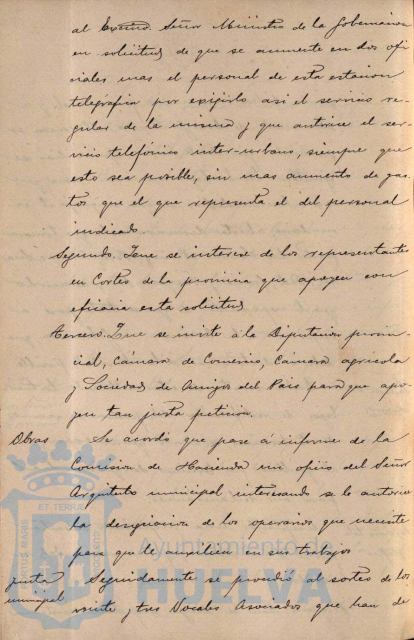 al Excmo. Señor Ministro de la Gobernacion
en solicitud de que se aumente en dos ofi
ciales mas el personal de esta estacion
telegráfica por exijirlo asi el servicio re-
gular de la misma y que autorice el ser-
vicio telefónico inter-urbano, siempre que
esto sea posible, sin mas aumento de gas-
tos que el que representa el del personal
indicado
Segundo. Que se interese de los representantes
en Cortes de la provincia que apoyen con
eficacia esta solicitud
Tercero. Que se invite á la Diputacion provin-
cial, Cámara de Comercio, Cámara agricola
y Sociedad de Amigos del Pais para que apo-
yen tan justa peticion.
Obras Se acordó que pase á informe de la
Comision de Hacienda un oficio del Señor
Arquitecto municipal interesando se le autorice
la designacion de los operarios que necesite
para que le auxilien en sus trabajos
Junta municipal Seguidamente se procedió al sorteo de los
veinte y tres Vocales Asociados que han de
Ayuntamiento de
HUELVA